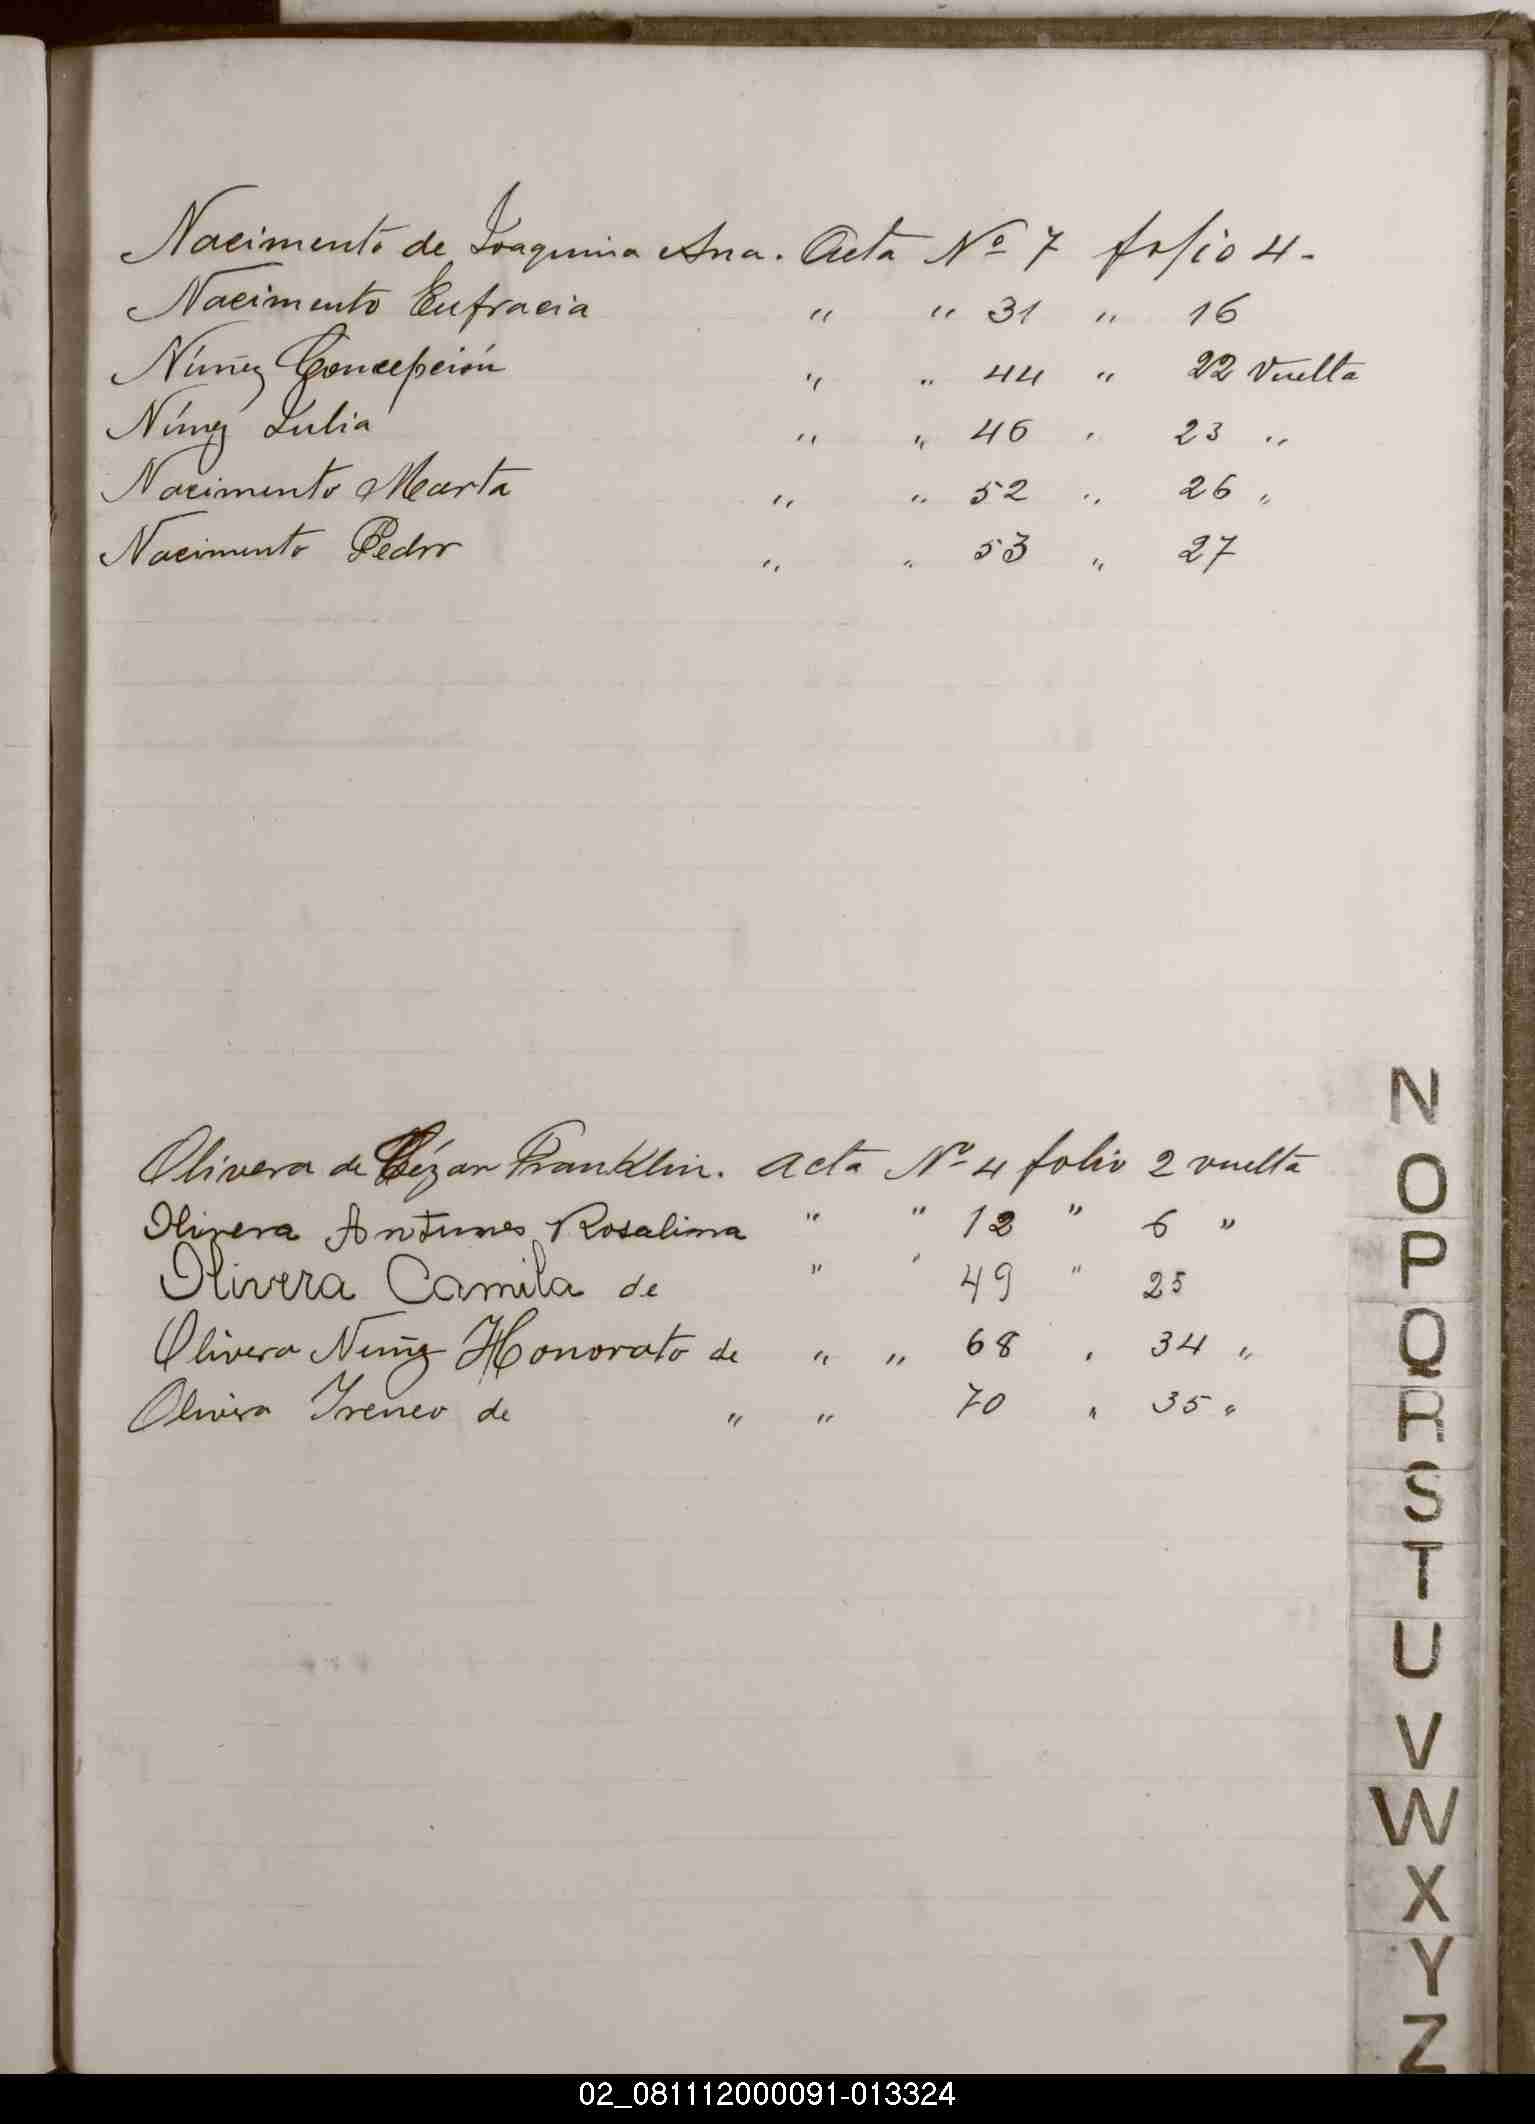 Nacimento de Joaquina Ana. Acta Nº 7 folio 4-
Nacimento Eufracia " " 31 " 16
Núñez Concepción " " 44 " 22 vuelta
Núñez Julia " " 46 " 23 "
Nacimento Marta " " 52 " 26 "
Nacimento Pedro " " 53 " 27
Olivera de Cézar Franklin. Acta Nº 4 folio 2 vuelta
Olivera Antunes Rosalina " " 12 " 6 "
Olivera Camila de " " 49 " 25
Olivera Nuñez Honorato de " " 68 " 34 "
Olivera Ireneo de " " 70 " 35 "
N
O
P
Q
R
S
T
U
V
W
X
Y
Z
02_081112000091-013324